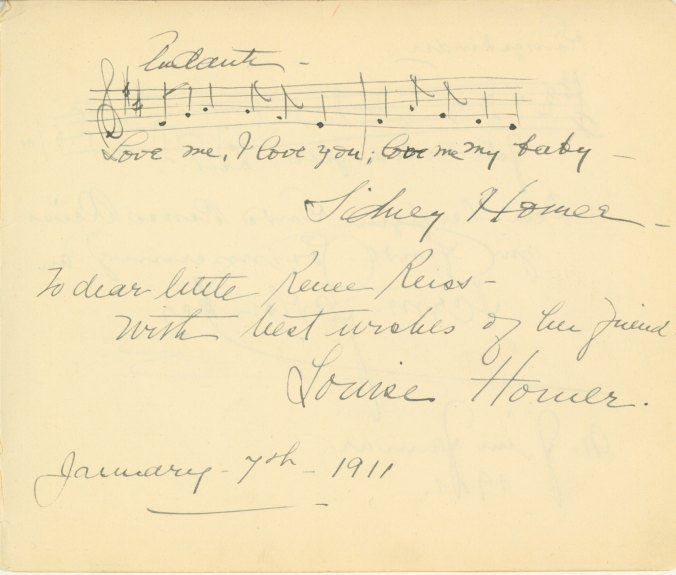 Andante -
Love me, I love you; love me my baby -
Sidney Homer -
To dear little Renee Reiss -
With best wishes of her friend
Louise Homer.
January - 7th - 1911